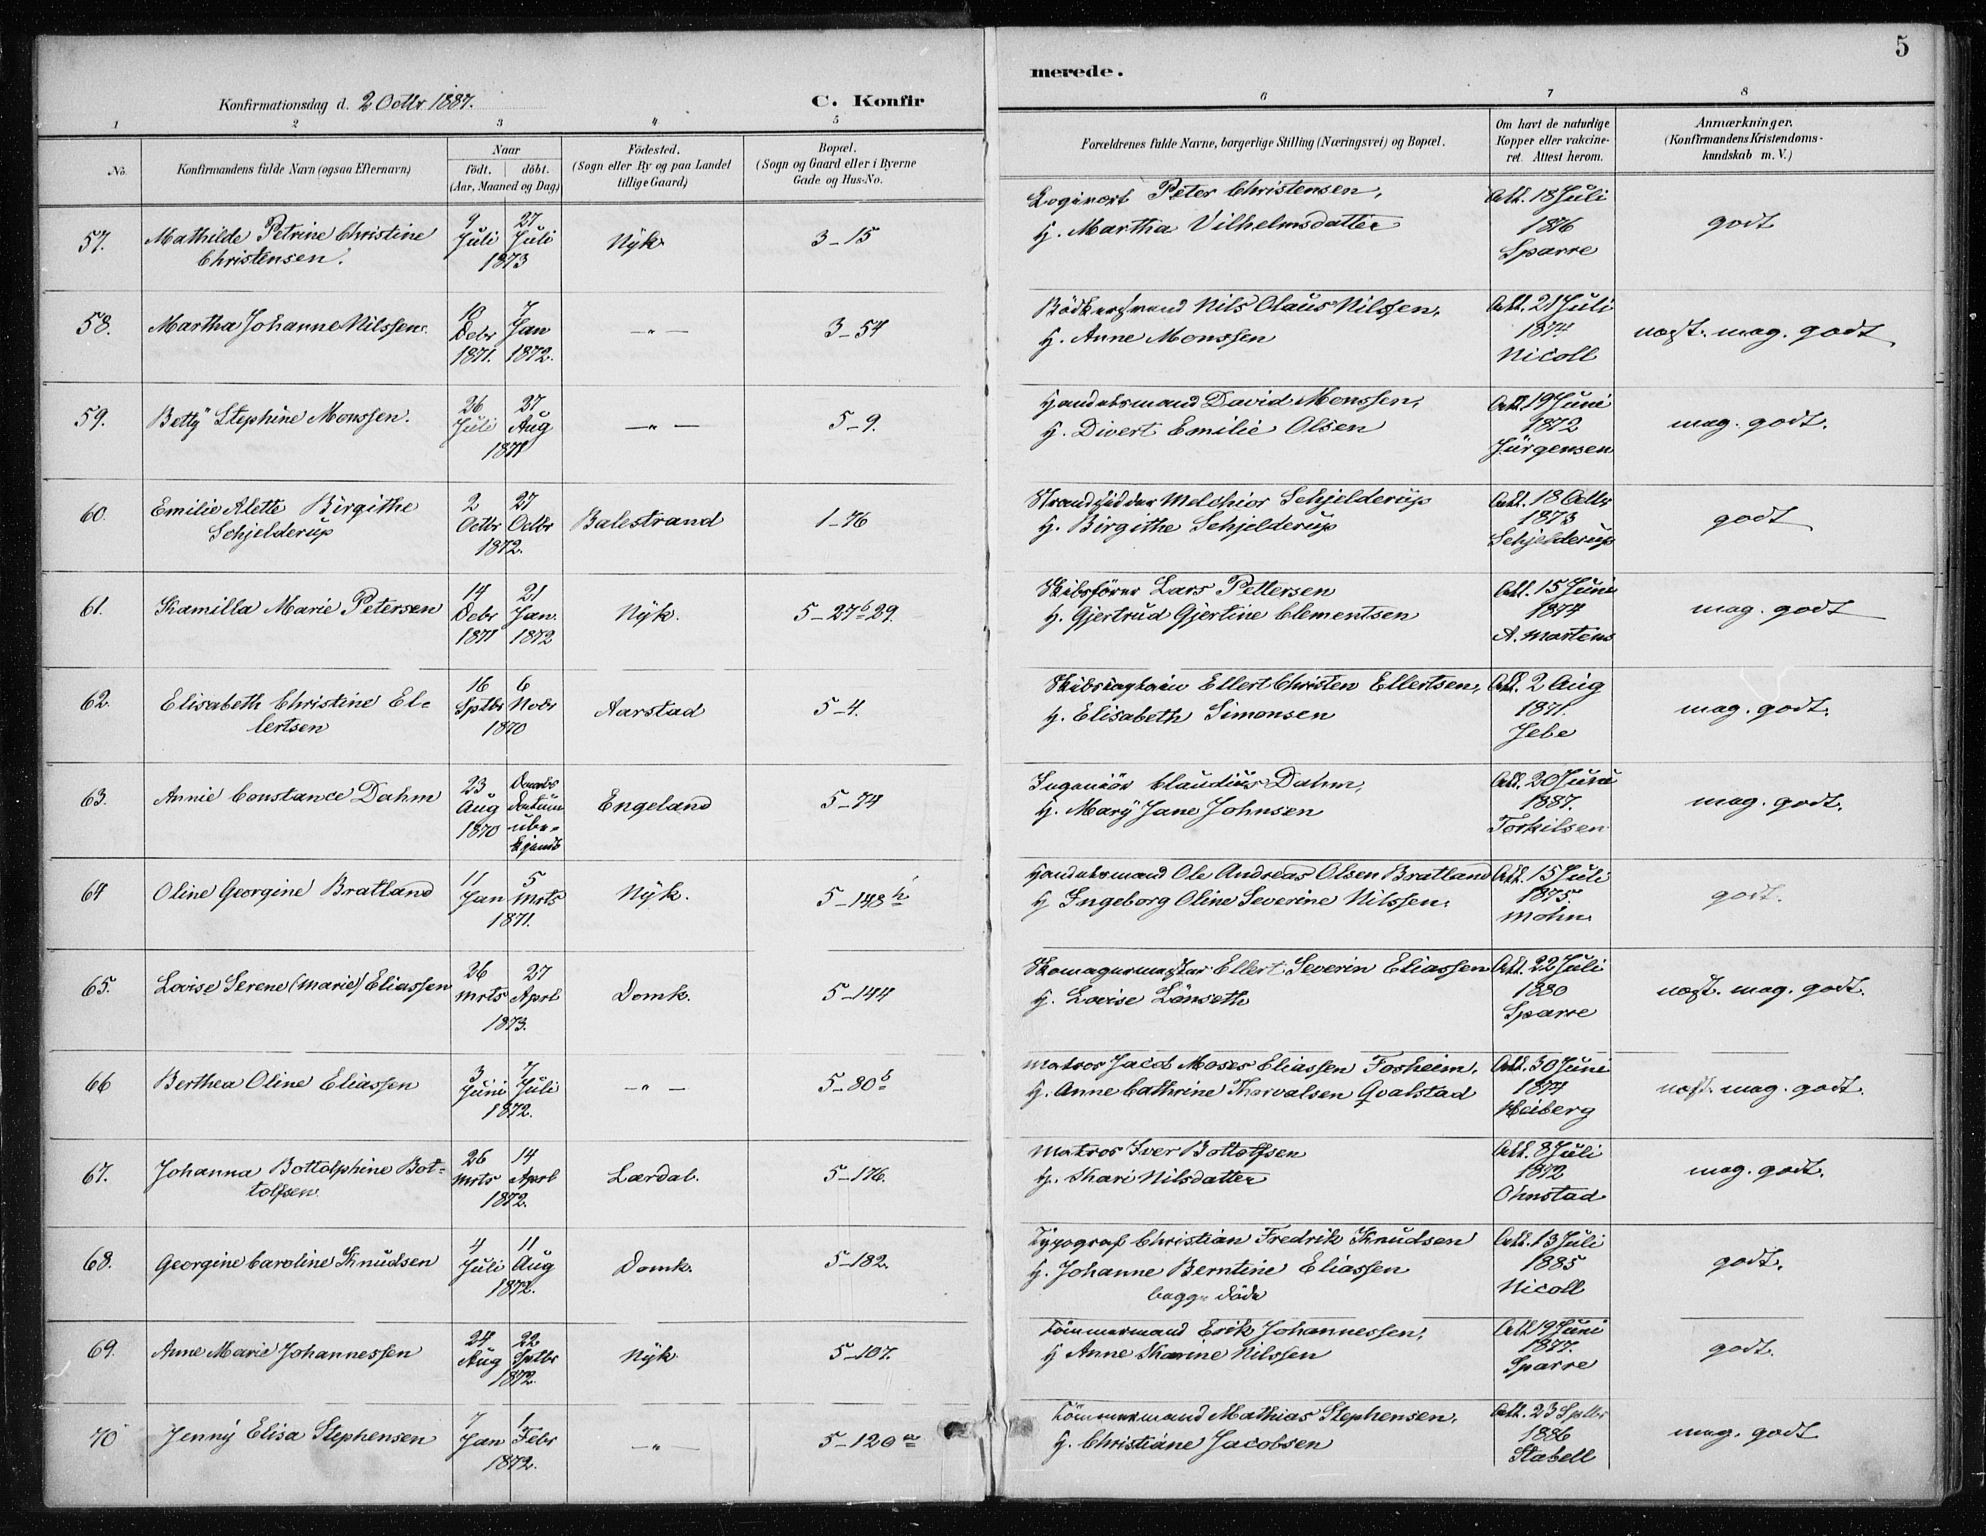 5
Konfirmationsdag d. 2 Octbr 1887. C. Konfir
merede.
1 2 3 4 5 6 7 8
No. Konfirmandens fulde Navn (ogsaa Efternavn) Naar født. døbt. (Aar, Maaned og Dag) Fødested. (Sogn eller By og paa Landet tillige Gaard) Bopæl. (Sogn og Gaard eller i Byerne Gade og Hus-No.
Forældrenes fulde Navne, borgerlige Stilling (Næringsvei) og Bopæl. Om havt de naturlige Kopper eller vakcineret. Attest herom. Anmærkninger. (Konfirmandens Kristendomskundskab m. V.)
57. Mathilde Petrine Christine Christensen. 9 Juli 27 Juli 1873 Nÿk. 3-15 Logivert Peter Christensen, H. Martha Vilhelmsdatter Att. 18 Juli 1876 Sparre godt
58. Martha Johanne Nilssen. 10 Debr 1871. 7 Jan 1872. —"— 3-54 Bödkersvend Nils Olaus Nilssen, H. Anne Monssen Att. 21 Juli 1874 Nicoll næst. mag. godt
59. Bettÿ Stephine Monssen. 26 Juli 27 Aug 1871 —"— 5-9. Handelsmand David Monssen, H. Divert Emilie Olsen Att. 19 Juni 1872 Jürgensen mag. godt.
60. Emilie Alette Birgithe Schjelderup 2 Octbr 27 Octbr 1872. Balestrand 1-76 Strandsidder Melchior Schjelderup H. Birgithe Schjelderup Att. 18 Octbr 1873 Schjelderup godt
61. Kamilla Marie Petersen 14 Debr 1871 21 Jan. 1872 Nÿk. 5-27b 29. Skibsförer Lars Pettersen H. Gjertrud Gjertine Clementsen Att. 15 Juni 1874 A. Martens mag. godt
62. Elisabeth Christine Ellertsen 16 Sptbr 6 Novbr 1870 Aarstad 5-4. Skibskaptain Ellert Christen Ellertsen, H. Elisabeth Simonsen Att. 2 Aug 1871. Jebe mag. godt.
63. Annie Constance Dahm 23 Aug 1870 Daabs Datum ubekjendt Engeland 5-74 Ingeniör Claudius Dahm, H. Marÿ Jane Johnsen Att. 20 Juni 1887. Torkilsen mag. godt.
64 Oline Georgine Bratland 11 Jan 5 Mrts 1871. Nÿk. 5-148h Handelsmand Ole Andreas Olsen Bratland H Ingeborg Oline Severine Nilssen. Att. 15 Juli 1875. Mohn. godt.
65. Lovise Serene (Marie) Eliassen 26 Mrts 27 Aprl 1873. Domk. 5-144 Skomagermester Ellert Severin Eliassen H. Lovise Lönseth Att. 22 Juli 1880 Sparre næst. mag. godt.
66 Berthea Oline Eliassen 3 Juni 7 Juli 1872. —"— 5-80b Matros Jacob Moses Eliassen Fosheim, H. Anne Cathrine Thorvalsen Qvalstad Att. 30 Juni 1874 Heiberg næst. mag. godt.
67. Johanna Bottolphine Bottolfsen 26 Mrts 14 Aprl 1872. Lærdal. 5-176. Matros Iver Bottolfsen H. Kari Nilsdatter Att. 8 Juli 1872 Ohnstad mag. godt.
68. Georgine Caroline Knudsen 4 Juli 11 Aug 1872. Domk. 5-182. Typograf Christian Fredrik Knudsen H. Johanne Berntine Eliassen begge döde Att. 13 Juli 1885 Nicoll godt.
69. Anne Marie Johannessen 24 Aug 22 Sptbr 1872. Nÿk 5-107. Tömmermand Erik Johannessen, H Anne Karine Nilssen Att 19 Juni 1877. Sparre godt.
70 Jennÿ Elisa Stephensen 7 Jan 1 Febr 1872. —"— 5-120a Tömmermand Mathias Stephensen. H. Christiane Jacobsen Att. 23 Sptbr 1886 Stabell mag. godt